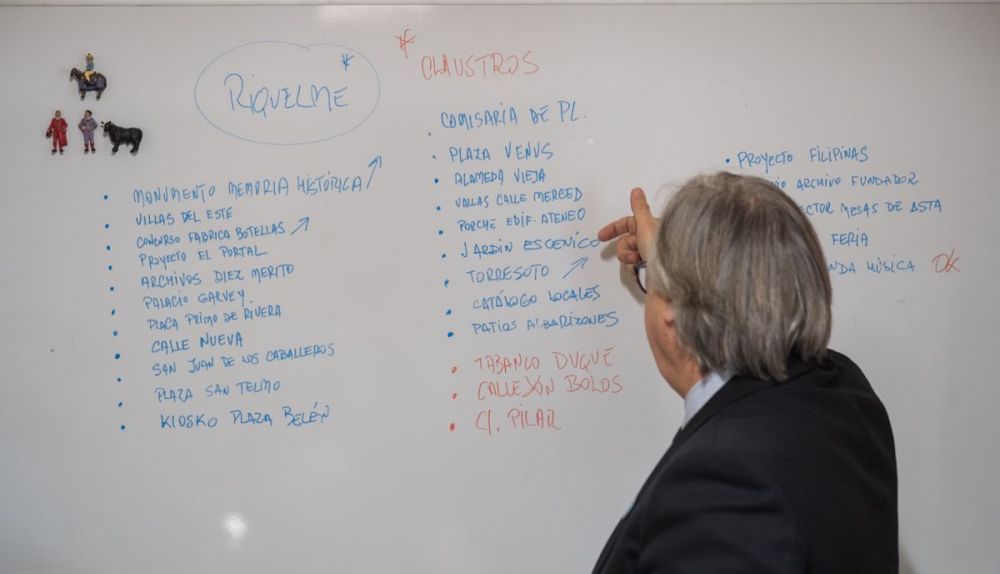 RIQUELME *
* CLAUSTROS
• MONUMENTO MEMORIA HISTÓRICA ↗
• VILLAS DEL ESTE
• CONCURSO FABRICA BOTELLAS ↗
• PROYECTO EL PORTAL
• ARCHIVOS DIEZ MERITO
• PALACIO GARVEY
• PLACA PRIMO DE RIVERA
• CALLE NUEVA
• SAN JUAN DE LOS CABALLEROS
• PLAZA SAN TELMO
• KIOSKO PLAZA BELÉN
• COMISARIA DE PL.
• PLAZA VENUS
• ALAMEDA VIEJA
• VALLAS CALLE MERCED
• PORCHE EDIF. ATENEO
• JARDIN ESCENICO
• TORRESOTO ↗
• CATÁLOGO LOCALES
• PATIOS ALBARIZONES
• TABANCO DUQUE
• CALLEJÓN BOLOS
• C/. PILAR
• PROYECTO FILIPINAS
ARCHIVO FUNDADOR
MESAS DE ASTA
FERIA
MÚSICA OK